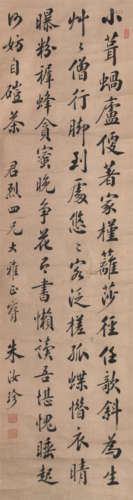 小葺蝸廬便著家槿籬莎徑任欹斜為生
艸艸僧行腳到處悠悠客泛槎孤蝶憯衣晴
曝粉稚蜂貪蜜晚爭花有書懶讀吾堪愧睡起
何妨自磑茶 君烈四兄大雅正寫 朱汝珍